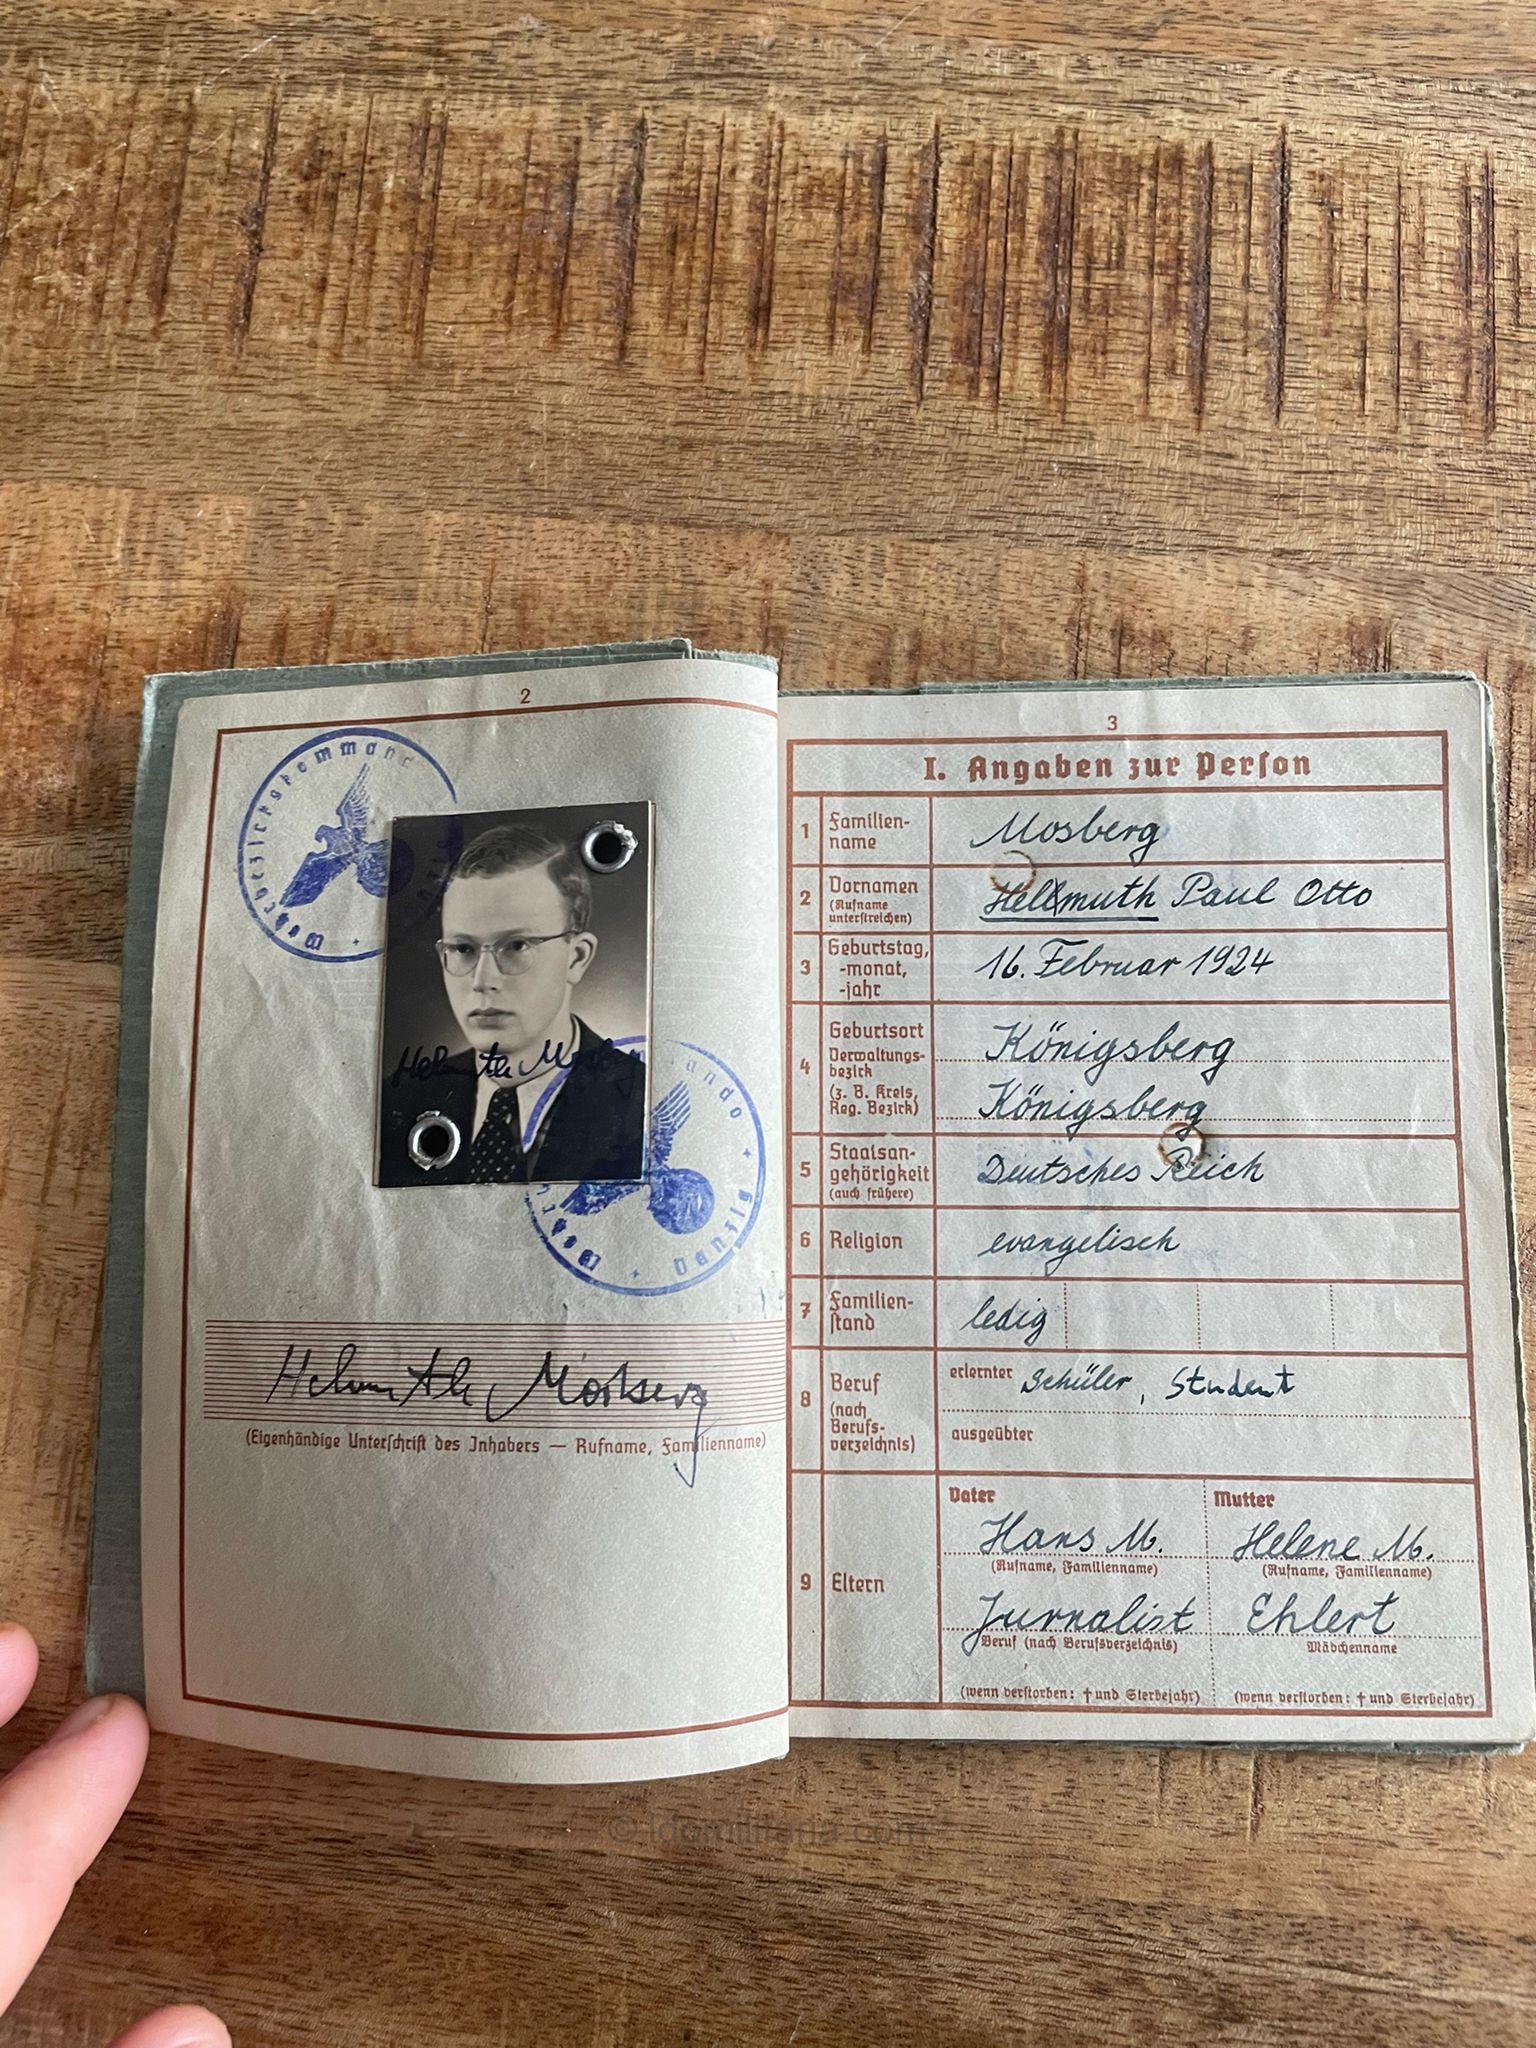 2
Wehrbezirkskommando
Helmuth Mosberg
Wehrbezirkskommando Danzig
Helmuth Mosberg
(Eigenhändige Unterschrift des Inhabers — Rufname, Familienname)
3
I. Angaben zur Person
1 Familien-
name
Mosberg
2 Vornamen
(Rufname
unterstreichen)
Hellmuth Paul Otto
3 Geburtstag,
-monat,
-jahr
16. Februar 1924
4 Geburtsort
Verwaltungs-
bezirk
(z. B. Kreis,
Reg. Bezirk)
Königsberg
Königsberg
5 Staatsan-
gehörigkeit
(auch frühere)
Deutsches Reich
6 Religion
evangelisch
7 Familien-
stand
ledig
8 Beruf
(nach
Berufs-
verzeichnis)
erlernter Schüler, Student
ausgeübter
9 Eltern
Vater
Hans M.
(Rufname, Familienname)
Jurnalist
Beruf (nach Berufsverzeichnis)
(wenn verstorben: † und Sterbejahr)
Mutter
Helene M.
(Rufname, Familienname)
Ehlert
Mädchenname
(wenn verstorben: † und Sterbejahr)
© ldomilitaria.com